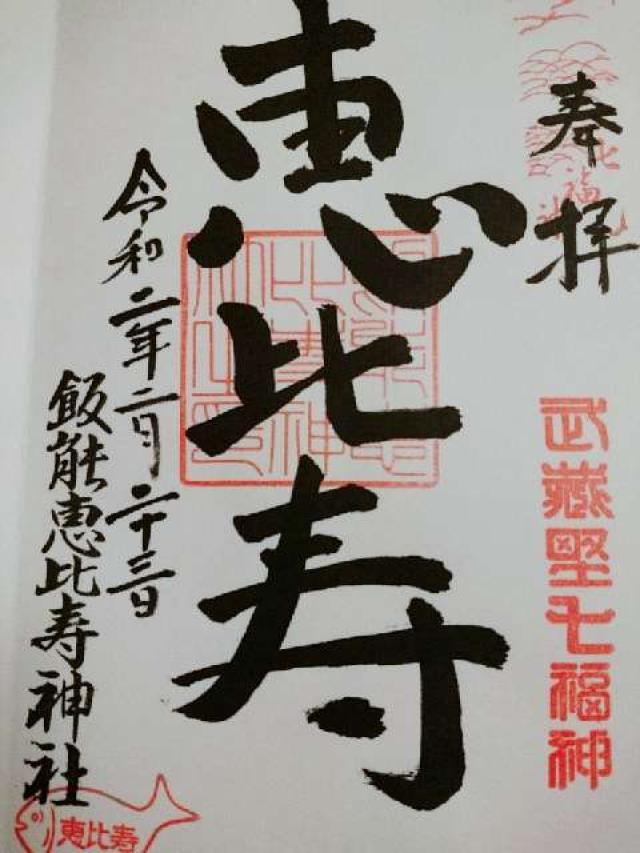 奉拝
武蔵野七福神
恵比寿
令和二年二月二十三日
飯能恵比寿神社
恵比寿